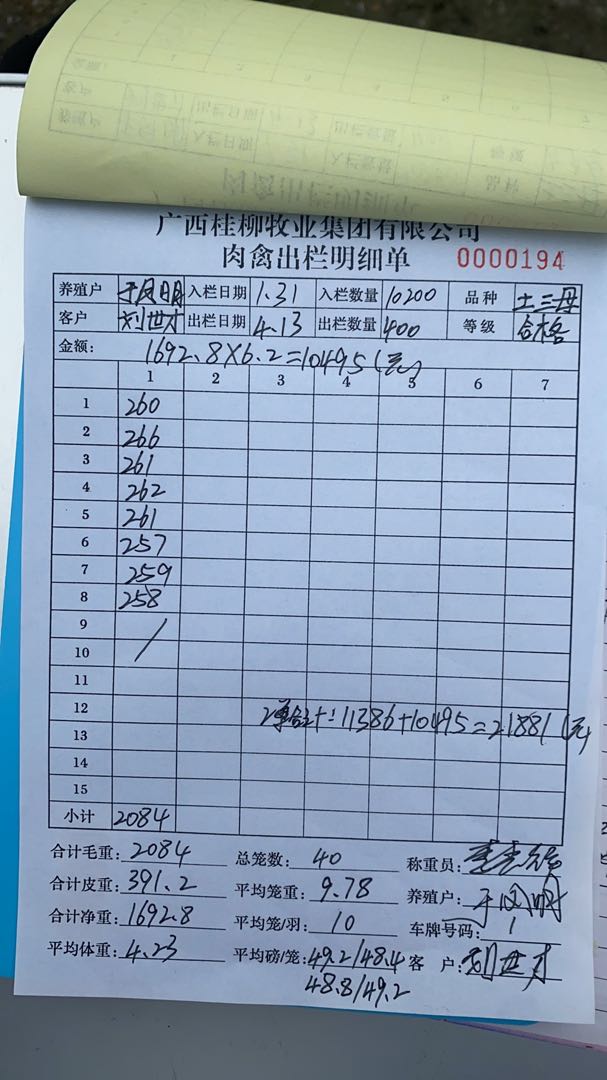 广西桂柳牧业集团有限公司
肉禽出栏明细单 0000194
养殖户 于凤明 入栏日期 1.31 入栏数量 10200 品种 土三母
客户 刘世才 出栏日期 4.13 出栏数量 400 等级 合格
金额: 1692.8×6.2=10495(元)
1 2 3 4 5 6 7
1 260
2 266
3 261
4 262
5 261
6 257
7 259
8 258
9
10 /
11
12 2单合计:11386+10495=21881(元)
13
14
15
小计 2084
合计毛重: 2084 总笼数: 40 称重员:
合计皮重: 391.2 平均笼重: 9.78 养殖户: 于凤明
合计净重: 1692.8 平均笼/羽: 10 车牌号码: 1
平均体重: 4.23 平均磅/笼: 49.2/48.4 客 户: 刘世才
48.8/49.2